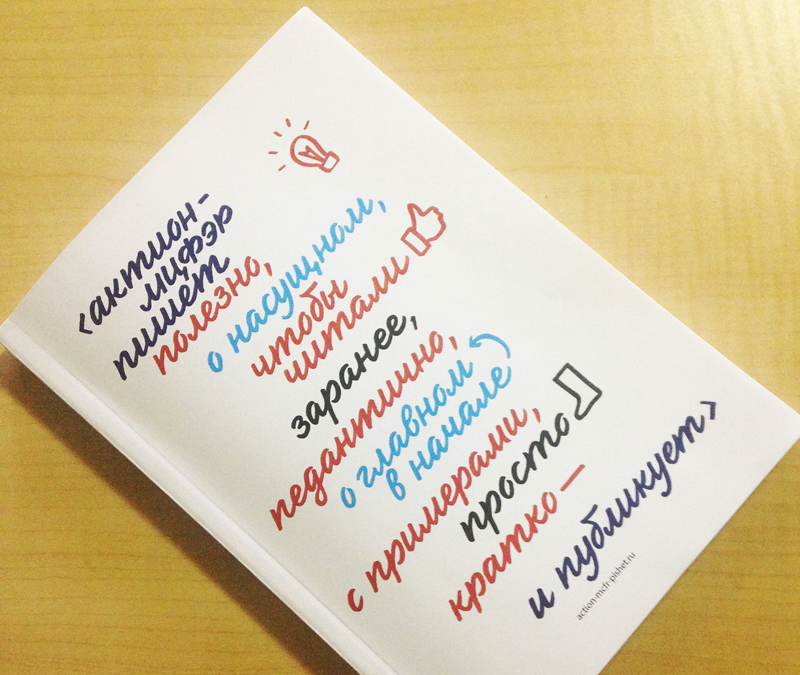 ‹актион-
мцфэр
пишет
полезно,
о насущном,
чтобы
читали
заранее,
педантично,
о главном
в начале
с примерами,
просто
кратко —
и публикует›
action-mcfr-pishet.ru